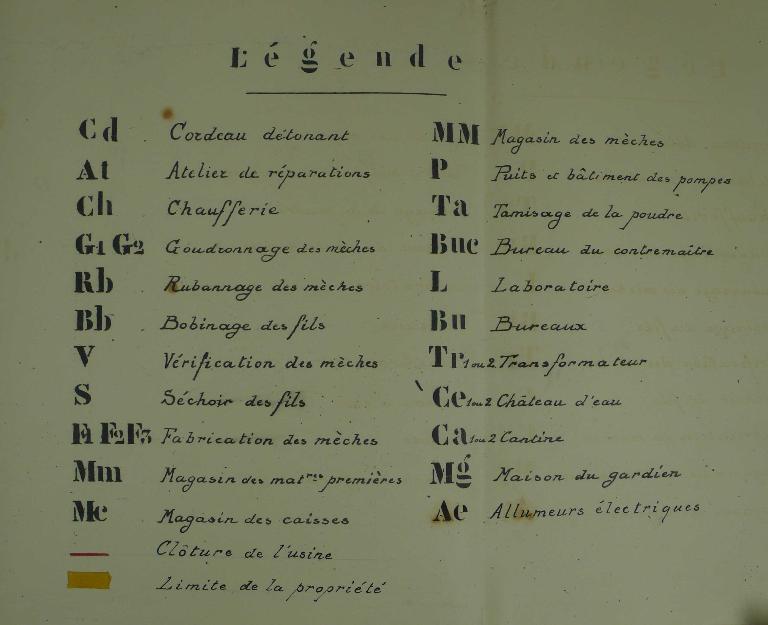 Légende
Cd Cordeau détonant
At Atelier de réparations
Ch Chaufferie
G1 G2 Goudronnage des mèches
Rb Rubannage des mèches
Bb Bobinage des fils
V Vérification des mèches
S Séchoir des fils
F1 F2 F3 Fabrication des mèches
Mm Magasin des mat^res premières
Mc Magasin des caisses
Clôture de l'usine
Limite de la propriété
MM Magasin des mèches
P Puits et bâtiment des pompes
Ta Tamisage de la poudre
Buc Bureau du contremaître
L Laboratoire
Bu Bureaux
Tr 1 ou 2 Transformateur
Ce 1 ou 2 Château d'eau
Ca 1 ou 2 Cantine
Mg Maison du gardien
Ae Allumeurs électriques